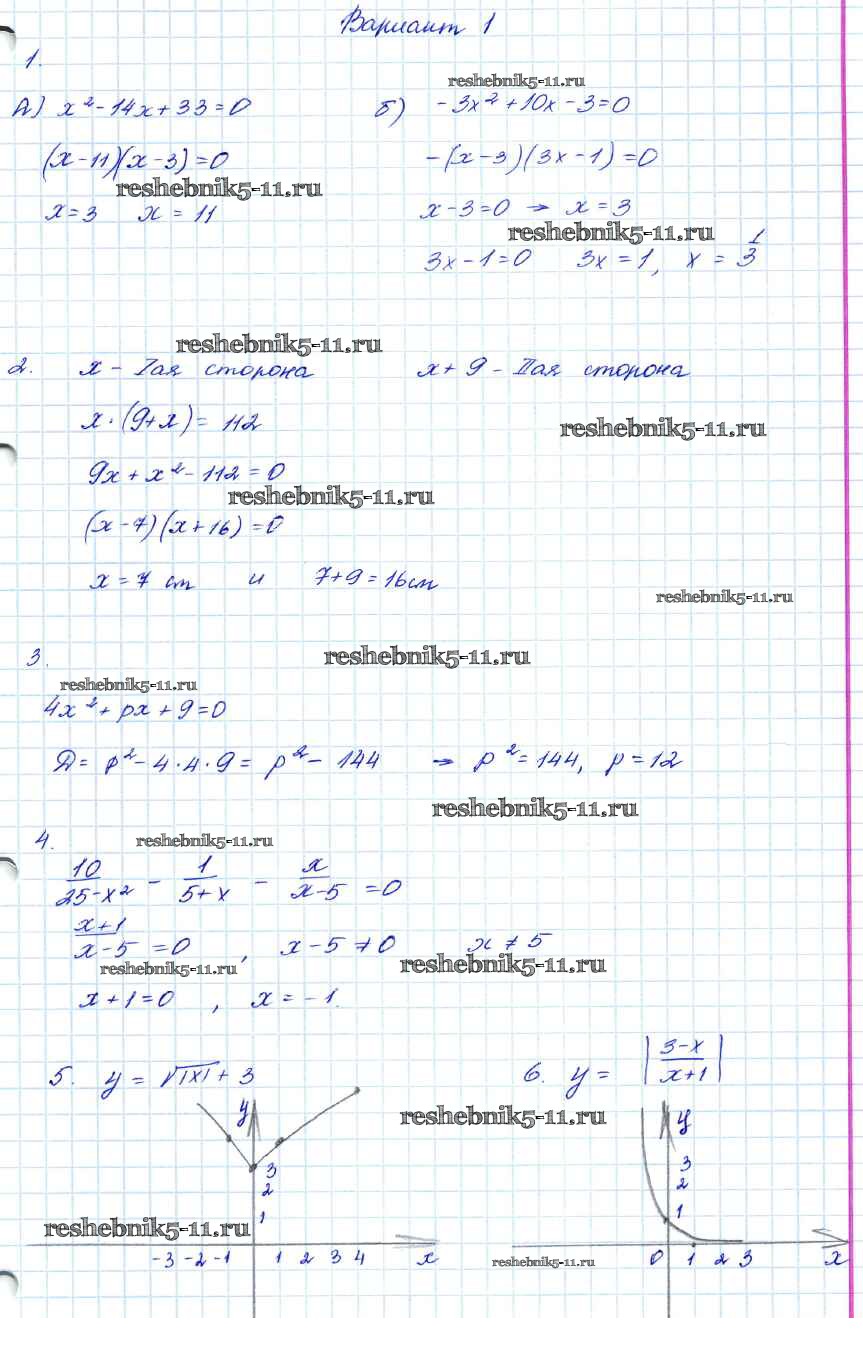 Вариант 1
1.
reshebnik5-11.ru
А) x² - 14x + 33 = 0 б) -3x² + 10x - 3 = 0
(x - 11)(x - 3) = 0 -(x - 3)(3x - 1) = 0
reshebnik5-11.ru
x = 3 x = 11 x - 3 = 0 → x = 3
reshebnik5-11.ru
3x - 1 = 0 3x = 1, x = 1/3
reshebnik5-11.ru
2. x - Iая сторона x + 9 - IIая сторона
x · (9 + x) = 112
reshebnik5-11.ru
9x + x² - 112 = 0
reshebnik5-11.ru
(x - 7)(x + 16) = 0
x = 7 см и 7 + 9 = 16 см
reshebnik5-11.ru
3.
reshebnik5-11.ru
reshebnik5-11.ru
4x² + px + 9 = 0
Д = p² - 4 · 4 · 9 = p² - 144 → p² = 144, p = 12
reshebnik5-11.ru
4.
reshebnik5-11.ru
10/(25 - x²) - 1/(5 + x) - x/(x - 5) = 0
(x + 1)/(x - 5) = 0, x - 5 ≠ 0 x ≠ 5
reshebnik5-11.ru
reshebnik5-11.ru
x + 1 = 0, x = -1.
5. y = √|x| + 3 6. y = |(3 - x)/(x + 1)|
reshebnik5-11.ru
y
3
2
1
reshebnik5-11.ru
-3 -2 -1 1 2 3 4 x
y
3
2
1
reshebnik5-11.ru
0 1 2 3 x